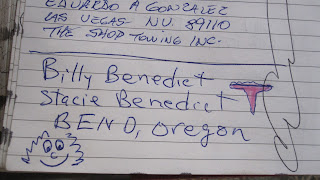 EDUARDO A GONZALEZ
LAS VEGAS - NV. 89110
THE SHOP TOWING INC.
Billy Benedict
Stacie Benedict
BEND, oregon